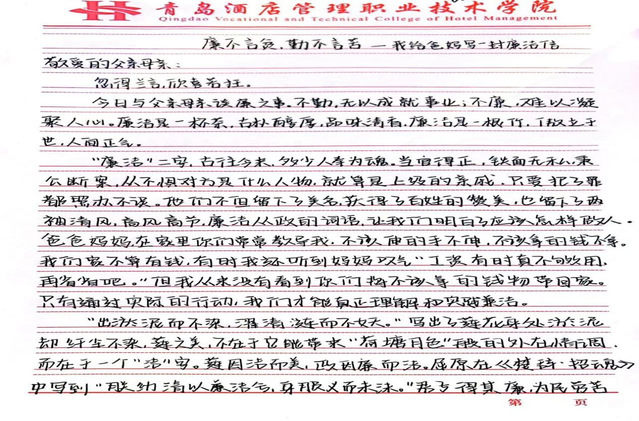 青岛酒店管理职业技术学院
Qingdao Vocational and Technical College of Hotel Management
廉不言贫,勤不言苦—我给爸妈写一封廉洁信
敬爱的父亲母亲:
忽得兰言,欣喜若狂。
今日与父亲母亲谈廉之事。不勤,无以成就事业;不廉,难以凝
聚人心。廉洁是一杯茶,古朴醇厚,品味清香,廉洁是一根竹,傲立于
世,人间正气。
"廉洁"二字,古往今来,多少人奉为魂。当官得正,铁面无私,秉
公断案,从不惧对方是什么人物,就算是上级的亲戚,只要犯了罪
都照办不误。他们不但留下了美名,获得了百姓的赞美,也留下了两
袖清风,高风高节,廉洁从政的词语,让我们明白了应该怎样做人。
爸爸妈妈在家里你们常常教导我,不该伸的手不伸,不该拿的钱不拿。
我们家不算有钱,有时我还听到妈妈叹气"工资有时真不够用,
再省省吧。"但我从来没有看到你们将不该拿的钱物带回家。
只有通过实际的行动,我们才能真正理解和实践廉洁。
"出淤泥而不染,濯清涟而不妖。"写出了莲花身处淤泥
却纤尘不染,莲之美,不在于它能带来"荷塘月色"般的外在情调
而在于一个"洁"字。莲因洁而美,政因廉而洁。屈原在《楚辞·招魂》
中写到"朕幼清以廉洁兮,身服义而未沫。"君子得其廉,为民劳苦
第 页